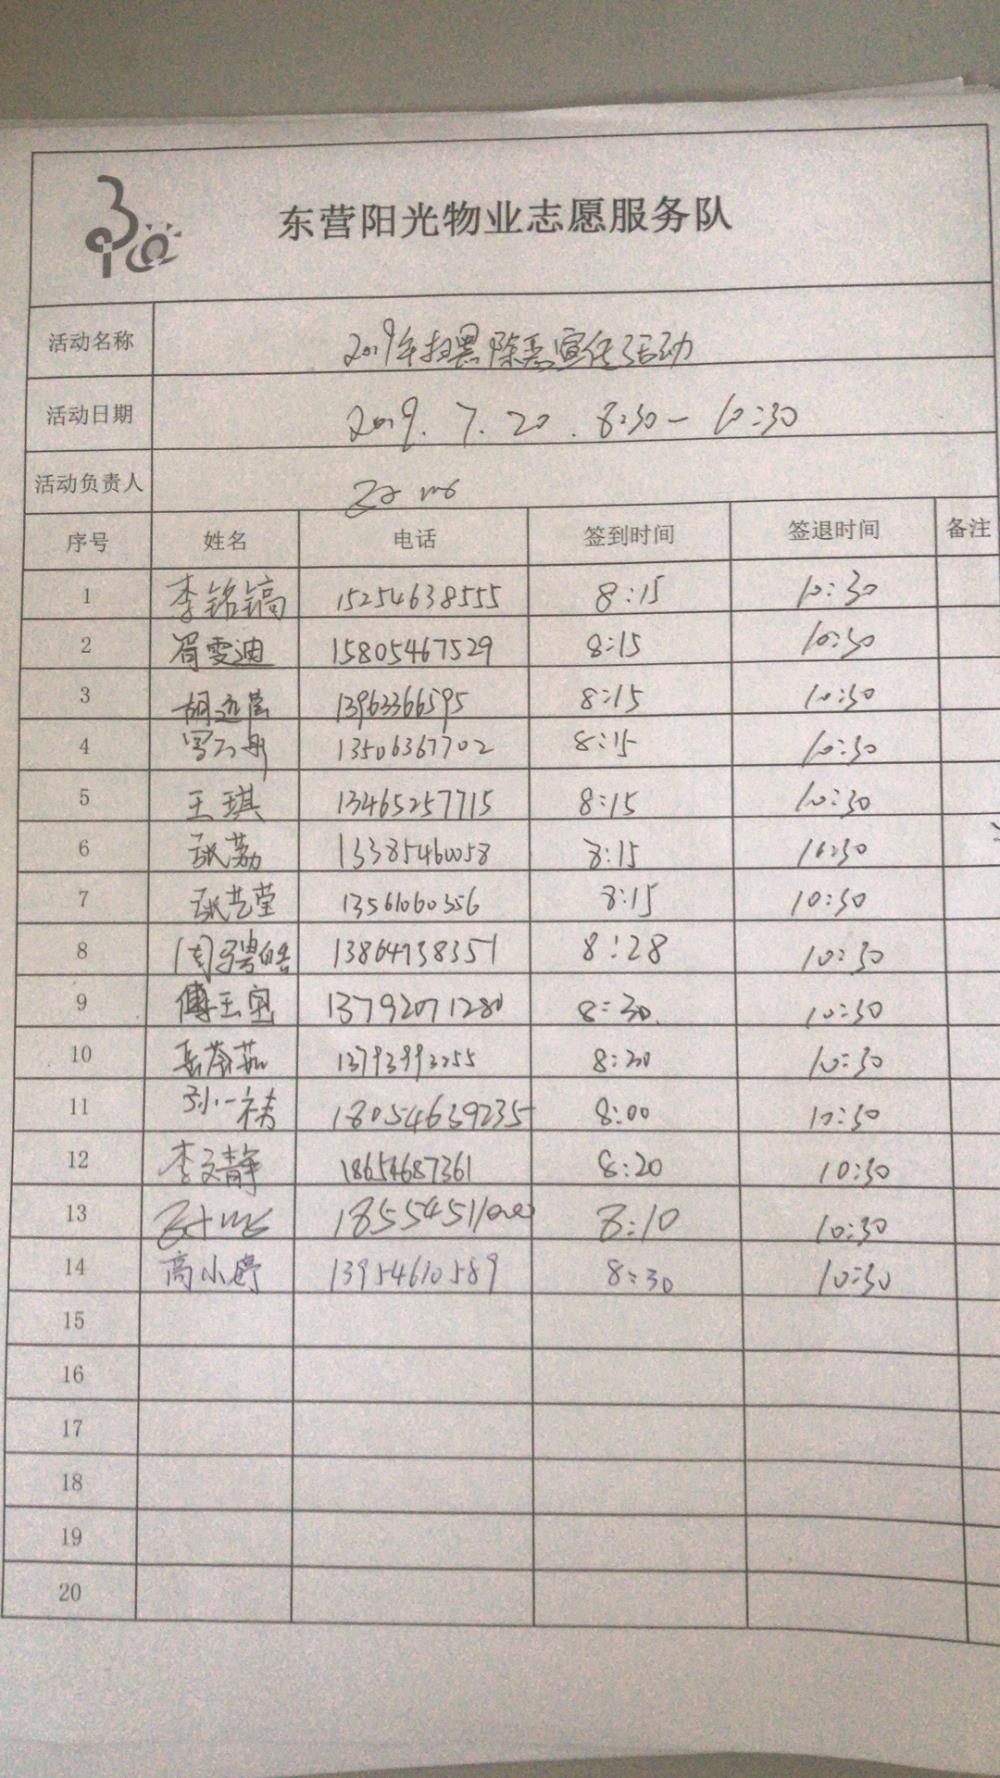 东营阳光物业志愿服务队
活动名称 2019年扫黑除恶宣传活动
活动日期 2019.7.20.8:30-10:30
活动负责人
序号 姓名 电话 签到时间 签退时间 备注
1 李铭镐 15254638555 8:15 10:30
2 胥雯迪 15805467529 8:15 10:30
3 13963366595 8:15 10:30
4 13506367702 8:15 10:30
5 王琪 13465257715 8:15 10:30
6 张荔 13385460058 8:15 10:30
7 张艺莹 13561060356 8:15 10:30
8 周骋皓 13864738351 8:28 10:30
9 傅玉宝 13792071280 8:30 10:30
10 13793993255 8:20 10:30
11 孙一祎 18054639235 8:00 10:30
12 李文静 18654687361 8:20 10:30
13 8:10 10:30
14 高小舒 13954610589 8:30 10:30
15
16
17
18
19
20